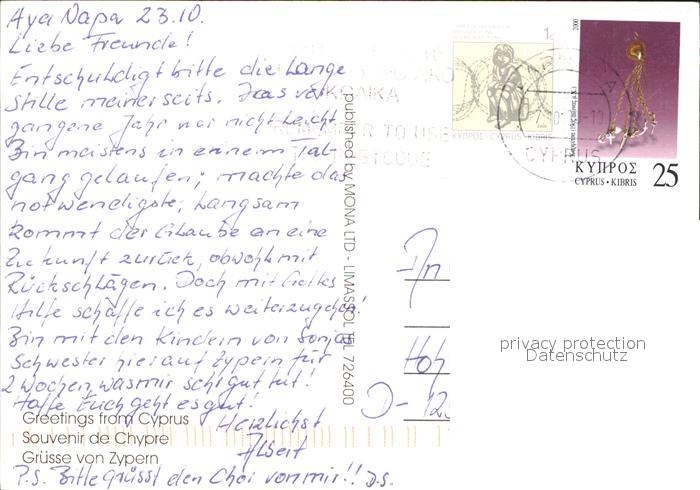 Aya Napa 23.10.
Liebe Freunde!
Entschuldigt bitte die lange
Stille meinerseits. Das ver-
gangene Jahr war nicht leicht.
Bin meistens in einem Tal-
gang gelaufen; machte das
notwendigste; Langsam
kommt der Glaube an eine
Zukunft zurück, obwohl mit
Rückschlägen. Doch mit Gottes
Hilfe schaffe ich es weiterzugehen!
Bin mit den Kindern von Sonjas
Schwester hier auf Zypern für
2 Wochen, was mir sehr gut tut!
Hoffe Euch geht es gut!
Herzlichst
Greetings from Cyprus
Souvenir de Chypre
Grüsse von Zypern
P.S. Bitte grüsst den Chor von mir!! D.S.
published by MONA LTD - LIMASSOL TEL 726400
REMEMBER TO USE
POSTCODE
CYPRUS
1c
ΚΥΠΡΟΣ - CYPRUS - KIBRIS
2000
ΚΥΠΡΟΣ
CYPRUS • KIBRIS 25
Hoh
D-12
privacy protection
Datenschutz